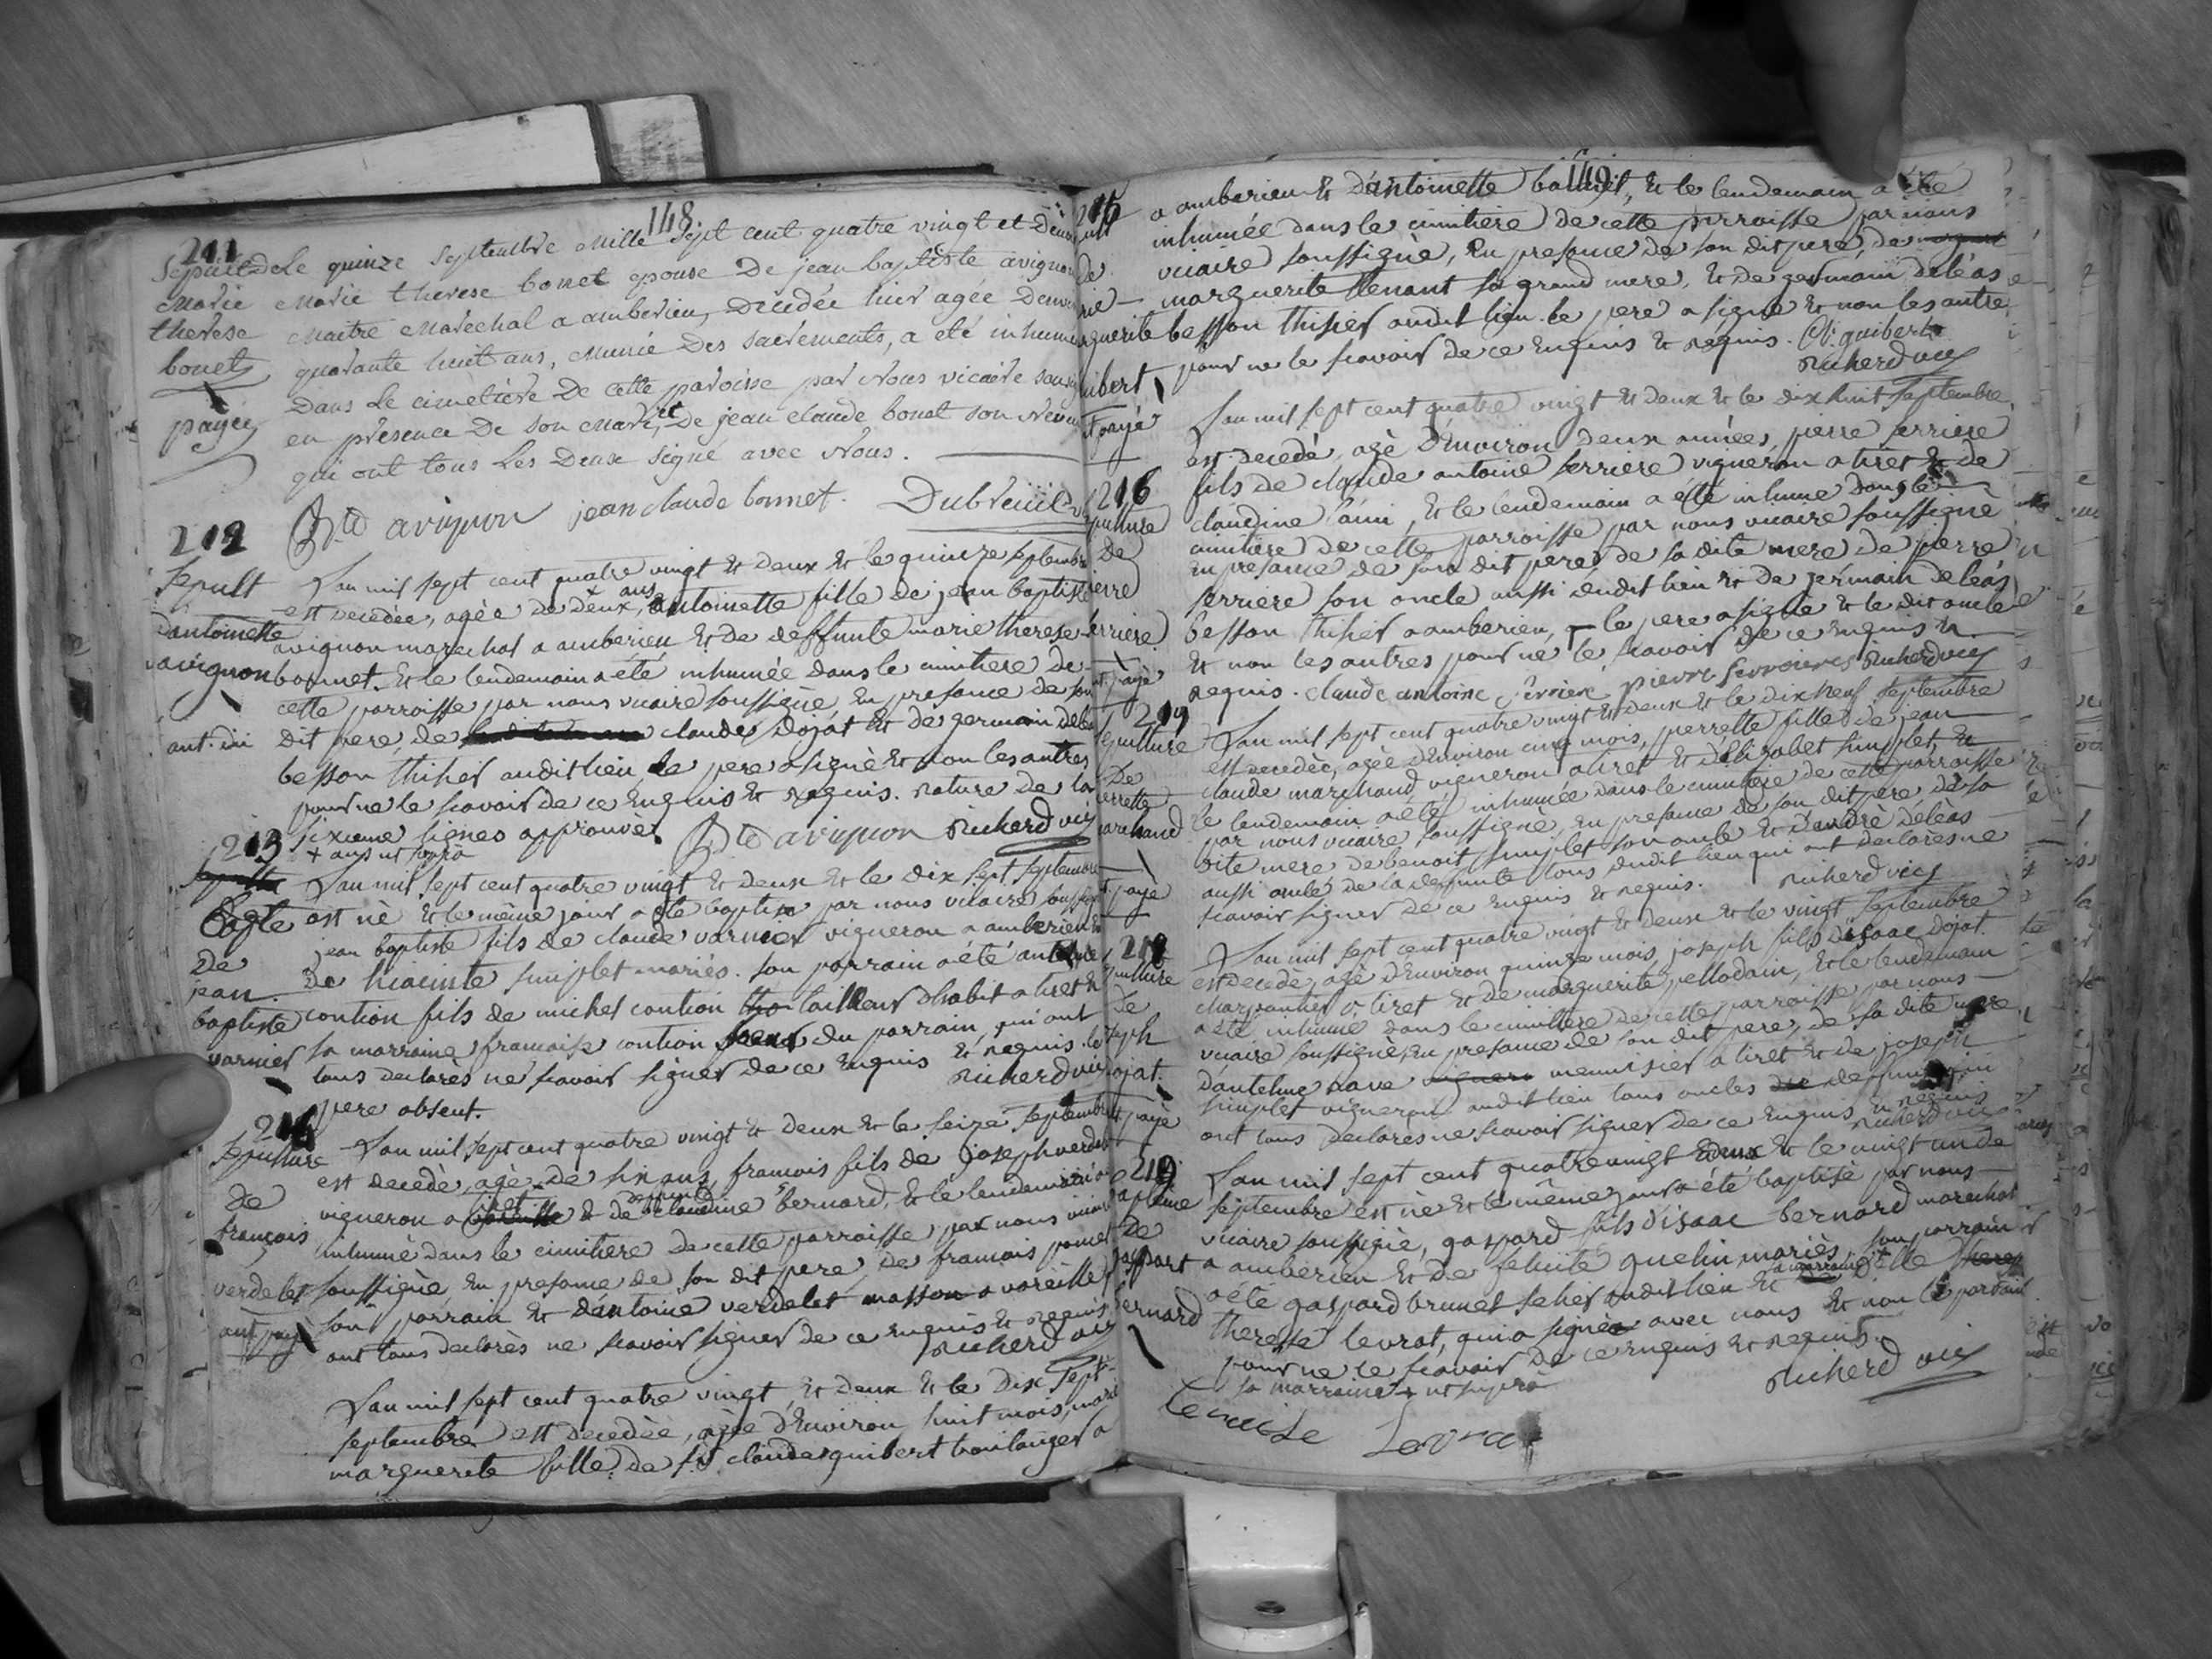 148
211
Sepult de Le quinze Septembre Mille Sept cent quatre vingt et Deux
Marie Marie therese bonet epouse De jean baptiste avignon
therese Maitre Marechal a amberieu, Decedée hier agée Denviron
bonet quarante huit ans, Munie Des Sacrements, a eté inhumée
Dans Le cimetiére De cette paroisse par Nous vicaire
payée en présence De son Mari, et De jean claude bonet son Neveu
qui ont tous Les Deux signé avec Nous.
Bte avignon jean claude bonnet. Dubreüil
212
Sepult L'an mil sept cent quatre vingt et deux et le quinze septembre
est decedée, agée de deux + ans, antoinette fille de jean baptiste
D'antoinette avignon marechal a amberieu et de deffunte marie therese
avignon bonnet. et le lendemain a été inhumée dans le cimitiere de
cette parroisse par nous vicaire soussigné en presance de son
dit pere, de claude Dojat et de germain deléas
besson thisier audit lieu le pere a signé et non les autres
pour ne le scavoir de ce enquis et requis. rature de la
sixieme lignes approuvé. Bte avignon Richerd vic
+ ans ut supra
213
L'an mil sept cent quatre vingt et deux et le dix sept septembre
Bapte est né et le même jour a été baptisé par nous vicaire
De jean baptiste fils de claude varnier vigneron a amberieu
jean De hiacinte simplet mariés. son parrain a été
baptiste contion fils de michel contion tailleur d'habit a tiret et
varnier sa marraine francoise contion soeur du parrain, qui ont
tous declarés ne scavoir signer de ce enquis et requis. le
pere absent. Richerd vic
214
Sepulture L'an mil sept cent quatre vingt et deux et le seize septembre
est decedé, agé de six ans, francois fils de joseph verdelet
De vigneron a tiret et de deffunte claudine bernard, et le lendemain a
françois inhumé dans le cimitiere de cette parroisse par nous vicaire
verdelet soussigné, en presance de son dit pere, de francois
son parrain et d'antoine verdelet masson a
ont tous declarés ne scavoir signer de ce enquis et requis
Richerd vic
L'an mil sept cent quatre vingt et deux et le dix sept
septembre est decedée, agée d'environ huit mois, marie
marguerite fille de sr claude guibert boulanger a
149
a amberieu et d'antoinette bonnet, et le lendemain a été
inhumée dans le cimitiere de cette parroisse par nous
vicaire soussigné, en presance de son dit pere, de
marguerite tenant sa grand mere, et de germain deléas
besson thisier audit lieu. le pere a signé et non les autres
pour ne le scavoir de ce enquis et requis. Cl. guibert
Richerd vic
payé
216
L'an mil sept cent quatre vingt et deux et le dix huit septembre
est decedé, agé d'environ deux années, pierre ferriere
fils de claude antoine ferriere vigneron a tiret et de
claudine l'ami, et le lendemain a été inhumé dans le
cimitiere de cette parroisse par nous vicaire soussigné
en presance de son dit pere de la dite mere de pierre
ferriere son oncle aussi dudit lieu et de germain deléas
besson thisier a amberieu, le pere a signé et le dit oncle
et non les autres pour ne le scavoir de ce enquis et
requis. claude antoine Ferriere pierre Richerd vic
Sepulture L'an mil sept cent quatre vingt et deux et le dix neuf septembre
est decedée, agée d'environ cinq mois, perrette fille de jean
De claude marchand vigneron a tiret et d'elizabet simplet, et
le lendemain a été inhumée dans le cimitiere de cette parroisse
par nous vicaire soussigné, en presance de son dit pere de sa
dite mere de benoit simplet son oncle et d'andré deléas
aussi oncle de la deffunte tous dudit lieu qui ont declarés ne
scavoir signer de ce enquis et requis. Richerd vic
L'an mil sept cent quatre vingt et deux et le vingt septembre
est decedé, agé d'environ quinze mois, joseph fils d'isaac Dojat
charpantier a tiret et de marguerite pellodain, et le lendemain
a été inhumé dans le cimitiere de cette parroisse par nous
vicaire soussigné, en presance de son dit pere, de sa dite mere
D'antelme nave menuisier a tiret et de joseph
simplet vigneron audit lieu tous oncles deffunt qui
ont tous declarés ne scavoir signer de ce enquis et requis
Richerd vic
219
L'an mil sept cent quatre vingt deux et le vingt un de
septembre est né et le même jour a été baptisé par nous
De vicaire soussigné, gaspard fils d'isaac bernard marechal
a amberieu et de felicité quelin mariés. son parrain
a été gaspard brunet audit lieu et
therese levrat, qui a signé avec nous et non le parrain
pour ne le scavoir de ce enquis et requis.
la marraine + ut supra Richerd vic